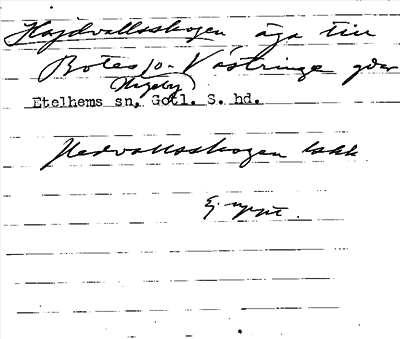 Hajdvallsskogen äga till
Botes o. Västringe gdar
Nygårds
Etelhems sn, Gotl. S. hd.
Hedvallsskogen lskk
Ej uppt.